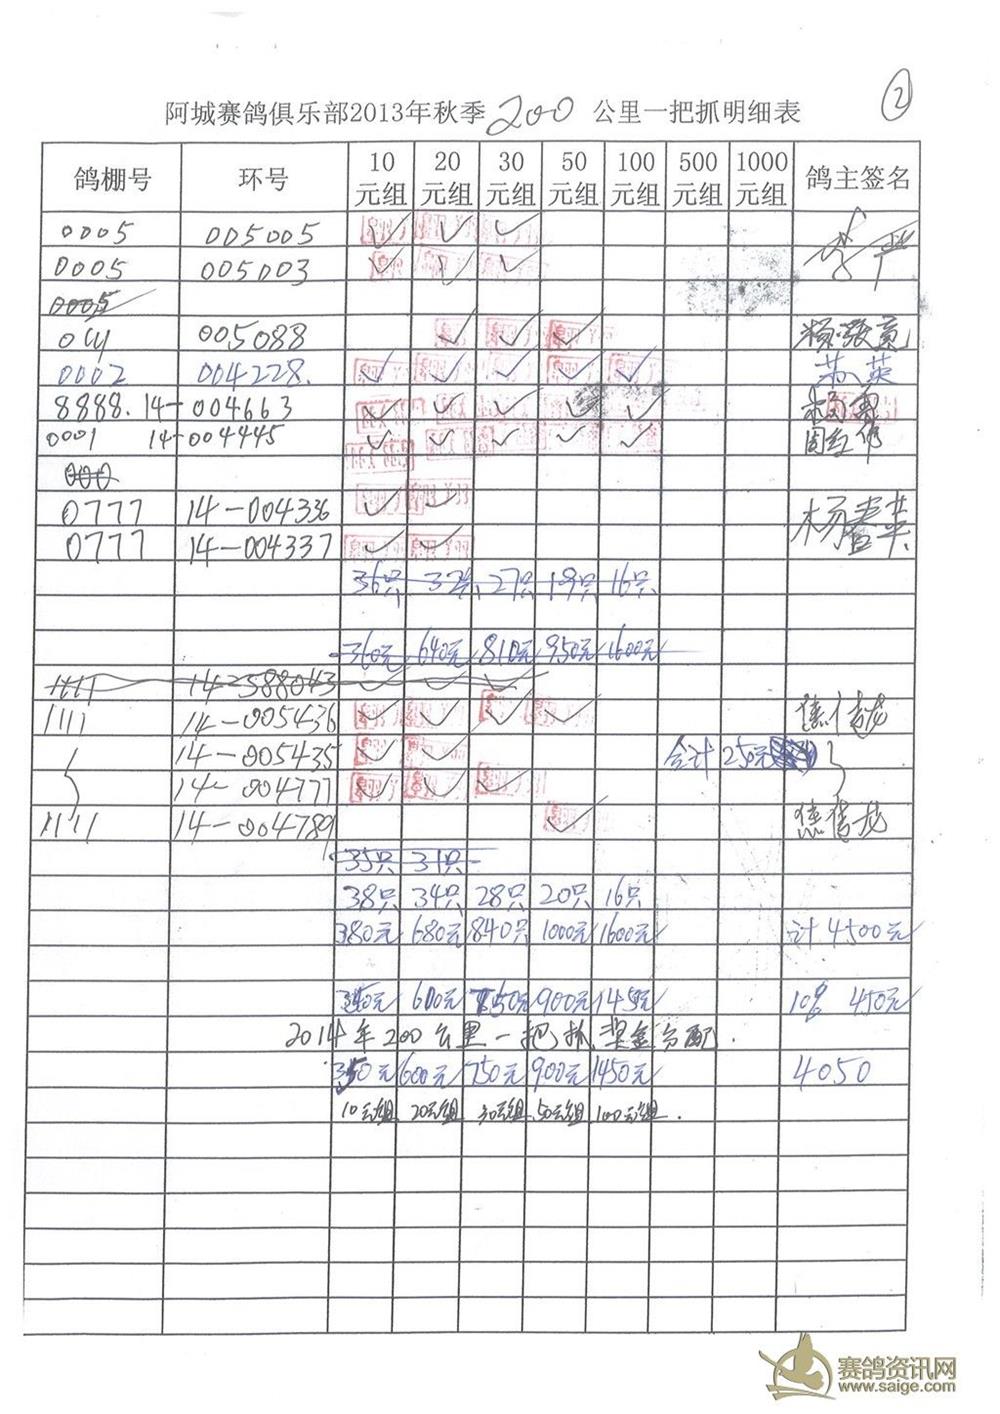 ②
阿城赛鸽俱乐部2013年秋季 200 公里一把抓明细表
鸽棚号 环号 10元组 20元组 30元组 50元组 100元组 500元组 1000元组 鸽主签名
0005 005005 ✓ ✓ ✓
0005 005003 ✓ ✓ ✓
0005
005088 ✓ ✓ ✓
0002 004228. ✓ ✓ ✓ ✓ ✓ 苏英
8888. 14-004663 ✓ ✓ ✓ ✓ ✓
0001 14-004445 ✓ ✓ ✓ ✓ ✓
000
0777 14-004336 ✓ ✓ 杨春英
0777 14-004337 ✓ ✓
36只 32只 27只 19只 16只
360元 640元 810元 950元 1600元
1111 14-588043 ✓ ✓ ✓
1111 14-005436 ✓ ✓ ✓ ✓
14-005435 ✓ ✓ 合计250元
14-004777 ✓ ✓ ✓
1111 14-004789 ✓
35只 31只
38只 34只 28只 20只 16只
380元 680元 840只 1000元 1600元 计4500元
600元 750元 900元 145元 10% 450元
2014年200公里一把抓奖金分配.
350元 600元 750元 900元 1450元 4050
10元组 20元组 30元组 50元组 100元组.
赛鸽资讯网
www.saige.com